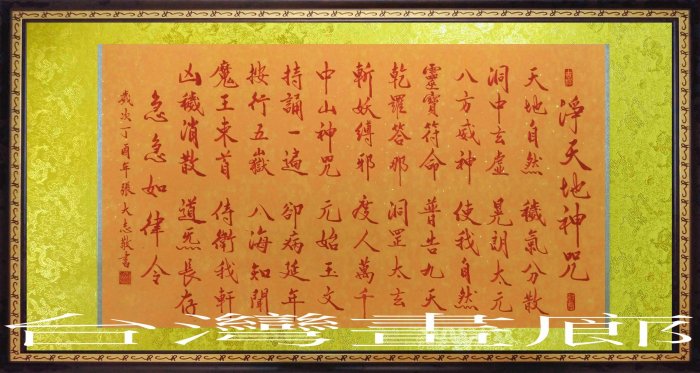 淨天地神咒
天地自然 穢氣分散
洞中玄虛 晃朗太元
八方威神 使我自然
靈寶符命 普告九天
乾羅答那 洞罡太玄
斬妖縛邪 度人萬千
中山神咒 元始玉文
持誦一遍 卻病延年
按行五嶽 八海知聞
魔王束首 侍衛我軒
凶穢消散 道炁長存
急急如律令
歲次丁酉年張大志敬書
台灣畫廊